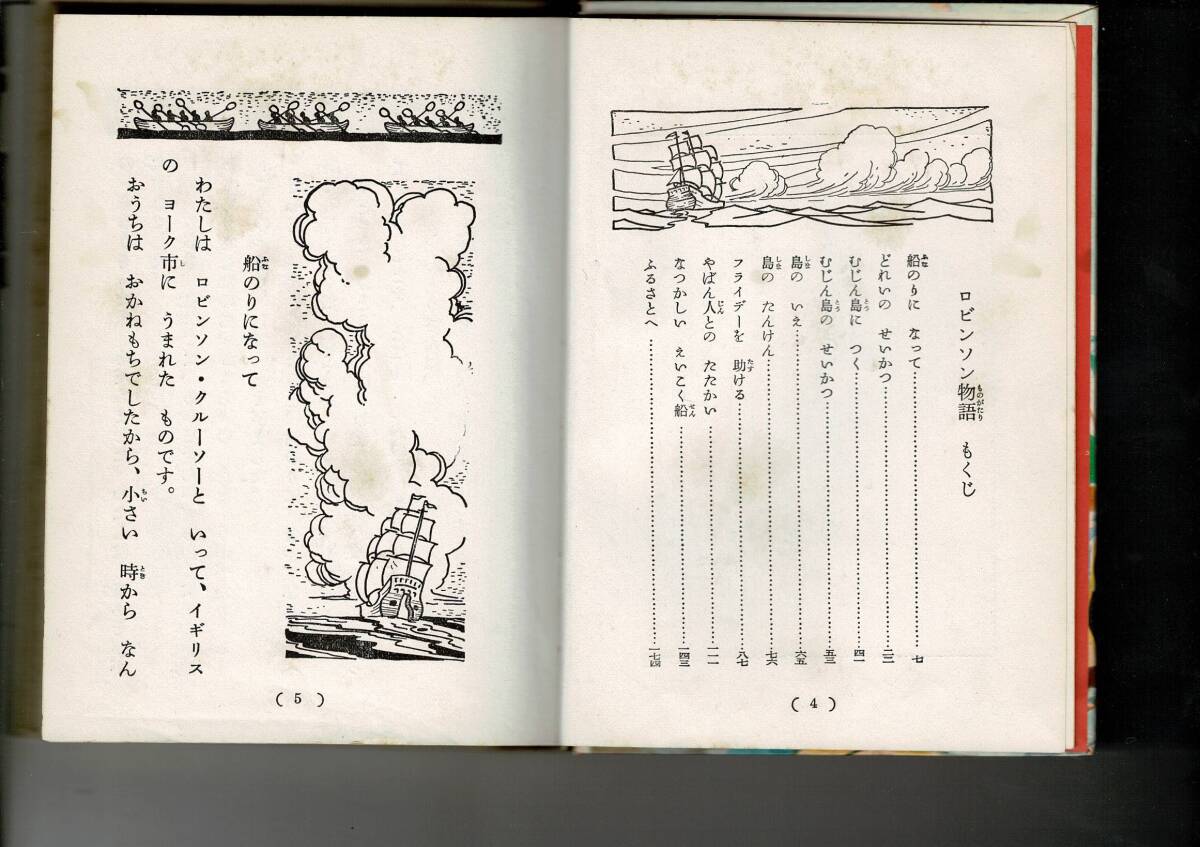 ロビンソン物語 もくじ
船のりに なって……七
どれいの せいかつ……二三
むじん島に つく……四一
むじん島の せいかつ……五三
島の いえ……六五
島の たんけん……七六
フライデーを 助ける……八七
やばん人との たたかい……一一一
なつかしい えいこく船……一四三
ふるさとへ……一七四
(4)
船のりになって
わたしは ロビンソン・クルーソーと いって、イギリス
の ヨーク市に うまれた ものです。
おうちは おかねもちでしたから、小さい 時から なん
(5)